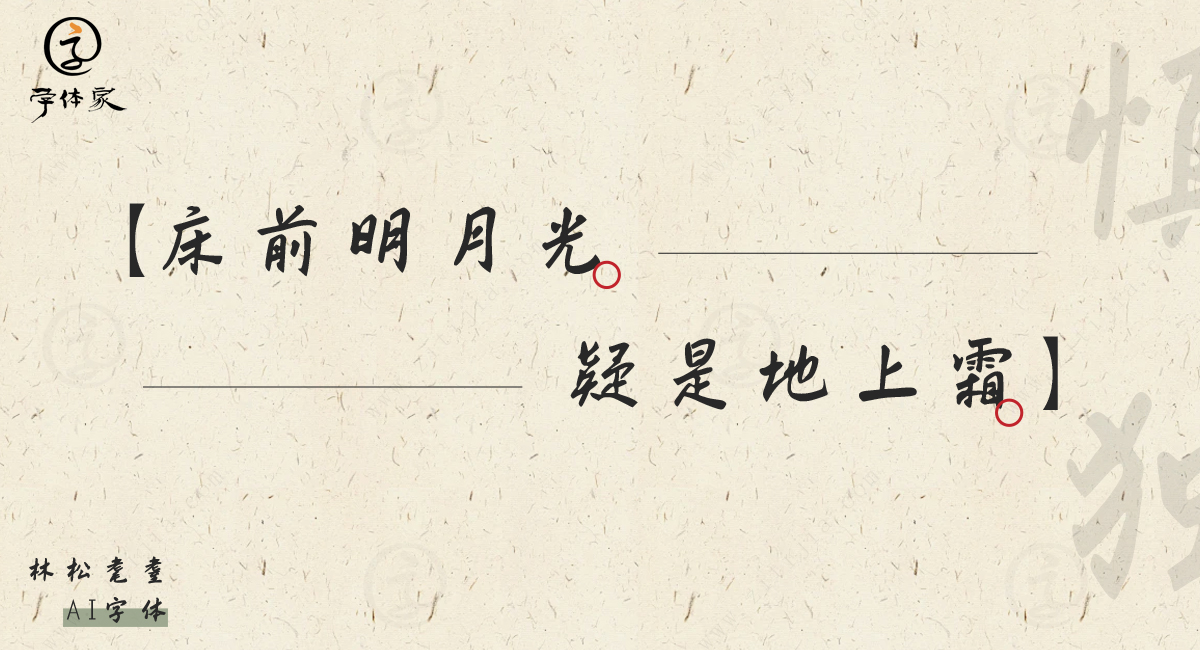 字体家
【床前明月光。
疑是地上霜。】
慎
独
林松耄耋
AI字体